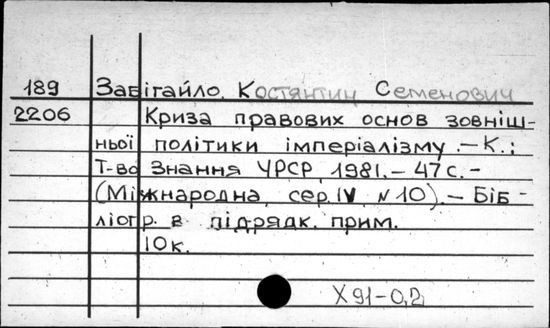 189 Забігайло, Костянтин Семенович
2206 Криза правових основ зовніш-
ньої політики імперіалізму. – К.:
Т-во Знання УРСР, 1981. – 47 с. –
(Міжнародна, сер. IV №10). – Біб-
ліогр. в підрядк. прим.
10к.
Х91-0,2